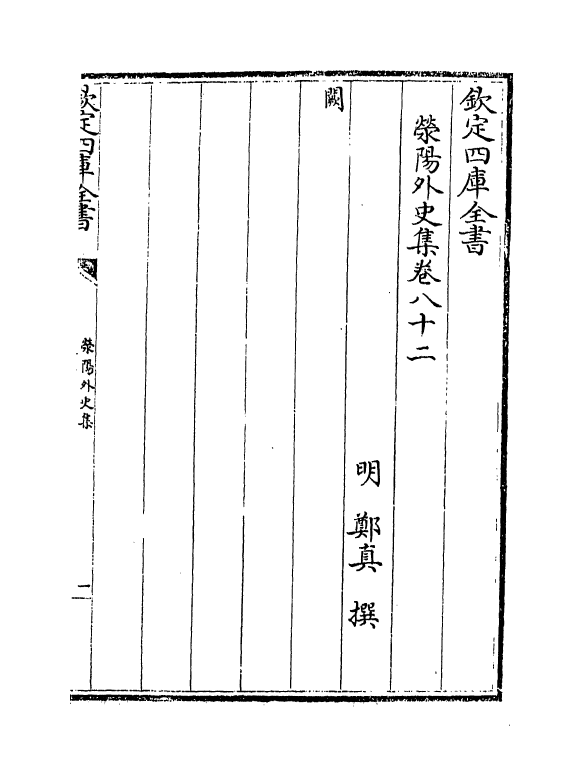 欽定四庫全書
滎陽外史集卷八十二
明 鄭真 撰
闕
欽定四庫全書
滎陽外史集
一